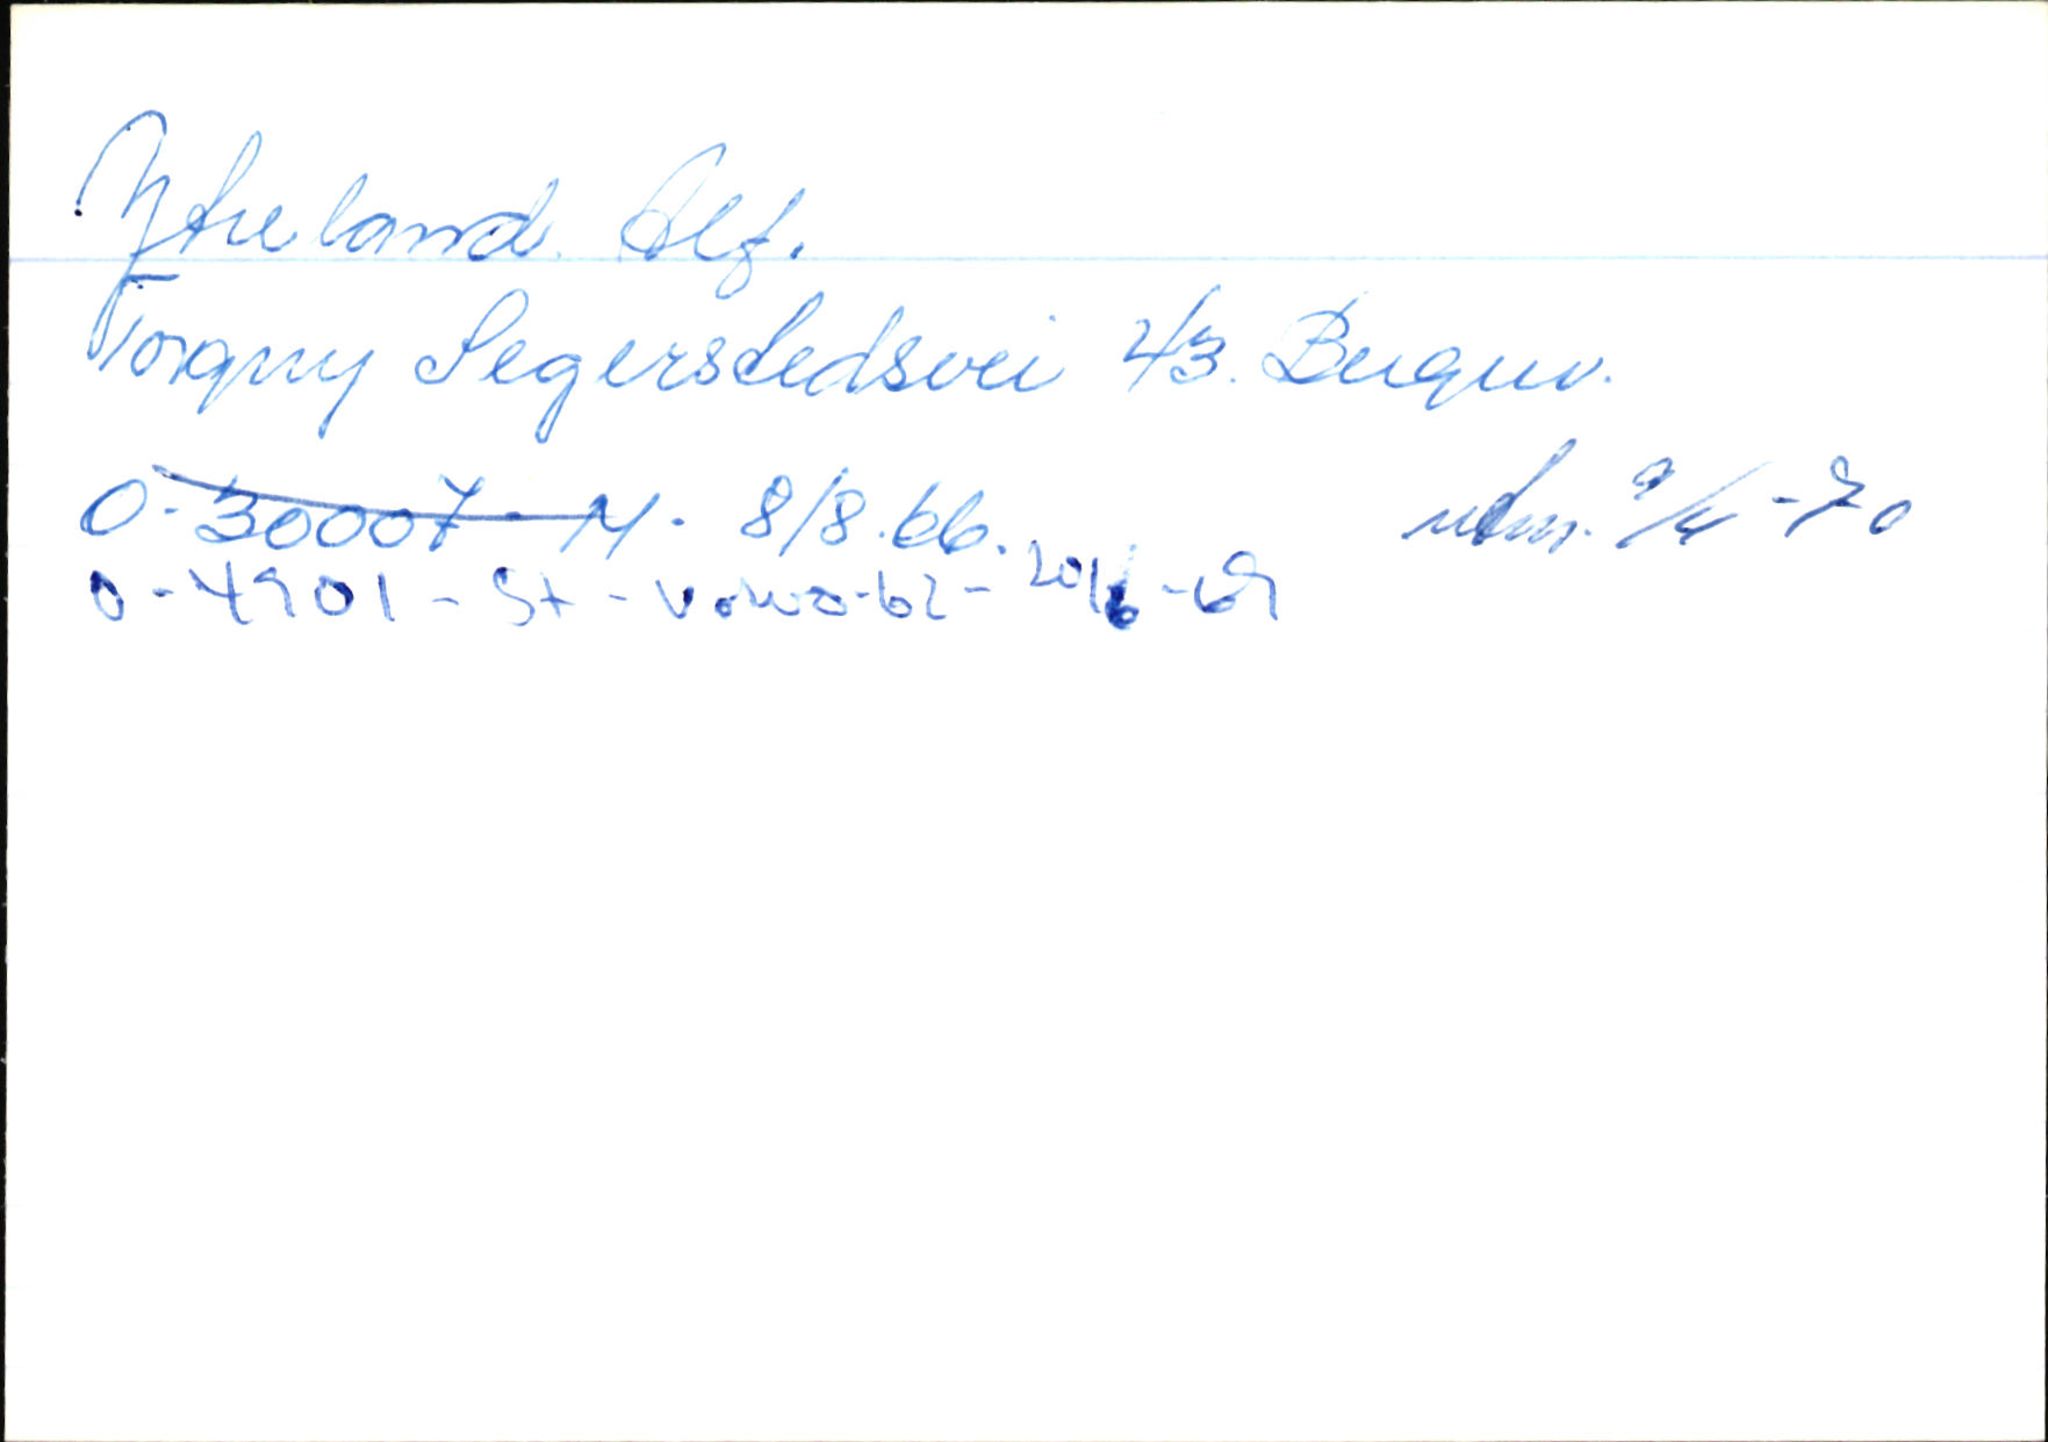 Ytreland Alf.
Torgny Segerstedsvei 43. Bergen.
O-30007-M. 8/8.66. utm. 9/4-70
O-4901-St-Volvo-62-20/6-69